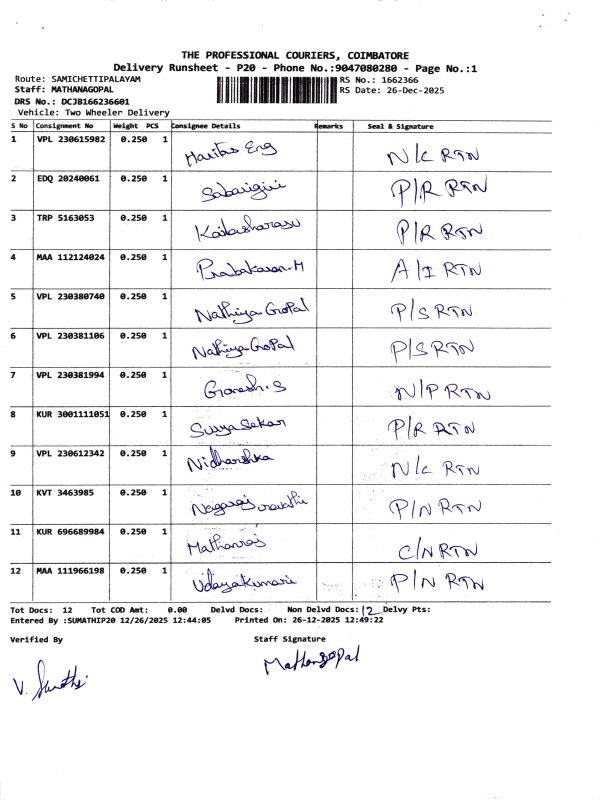 THE PROFESSIONAL COURIERS, COIMBATORE
Delivery Runsheet - P20 - Phone No.:9047080280 - Page No.:1
Route: SAMICHETTIPALAYAM RS No.: 1662366
Staff: MATHANAGOPAL RS Date: 26-Dec-2025
DRS No.: DCJB166236601
Vehicle: Two Wheeler Delivery
S No Consignment No Weight PCS Consignee Details Remarks Seal & Signature
1 VPL 230615982 0.250 1 Haritas Eng N/C RTN
2 EDQ 20240061 0.250 1 Sabarigiri P/R RTN
3 TRP 5163053 0.250 1 Kailasharasu P/R RTN
4 MAA 112124024 0.250 1 Prabakaran.M A/I RTN
5 VPL 230380740 0.250 1 Nathiya Gopal P/S RTN
6 VPL 230381106 0.250 1 Nathiya Gopal P/S RTN
7 VPL 230381994 0.250 1 Ganesh.S N/P RTN
8 KUR 3001111051 0.250 1 Surya Sekar P/R RTN
9 VPL 230612342 0.250 1 Nidharshka N/C RTN
10 KVT 3463985 0.250 1 Nagaraj P/N RTN
11 KUR 696689984 0.250 1 Mathanraj C/N RTN
12 MAA 111966198 0.250 1 Udayakumari P/N RTN
Tot Docs: 12 Tot COD Amt: 0.00 Delvd Docs: Non Delvd Docs: 12 Delvy Pts:
Entered By :SUMATHIP20 12/26/2025 12:44:05 Printed On: 26-12-2025 12:49:22
Verified By Staff Signature
Mathangopal
V. Sumathi